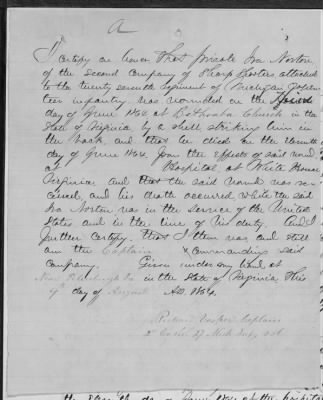 A
I certify on honor that private Ira Norton
of the second Company of Sharp Shooters attached
to the twenty seventh regiment of Michigan Volun
teer infantry was wounded on the
day of June 1864 at Bethsada Church in the
State of Virginia by a shell striking him in
the back and that he died on the eleventh
day of June 1864 from the effects of said wound
at Hospital at White House
Virginia and that the said wound was re
ceived and his death occurred while the said
Ira Norton was in the service of the United
States and in the line of his duty And I
further certify that I then was and still
am the Captain & commanding said
Company Given under my hand at
Near Petersburg Va in the State of Virginia this
9th day of August A.D. 1864
Captain
2d Co 27 Mich Inf